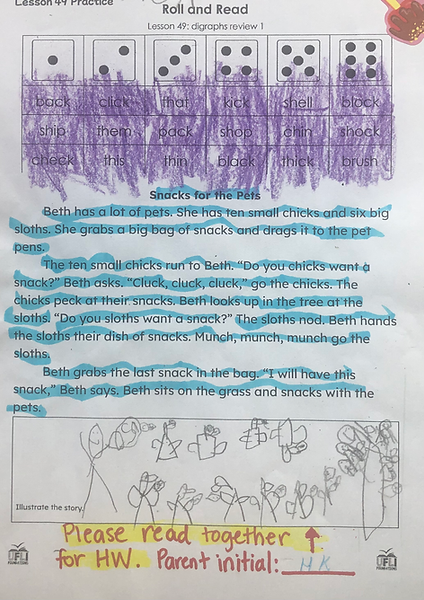 Lesson 49 Practice
Roll and Read
Lesson 49: digraphs review 1
back click that kick shell block
ship them pack shop chin shock
check this thin black thick brush
Snacks for the Pets
Beth has a lot of pets. She has ten small chicks and six big
sloths. She grabs a big bag of snacks and drags it to the pet
pens.
The ten small chicks run to Beth. “Do you chicks want a
snack?” Beth asks. “Cluck, cluck, cluck,” go the chicks. The
chicks peck at their snacks. Beth looks up in the tree at the
sloths. “Do you sloths want a snack?” The sloths nod. Beth hands
the sloths their dish of snacks. Munch, munch, munch go the
sloths.
Beth grabs the last snack in the bag. “I will have this
snack,” Beth says. Beth sits on the grass and snacks with the
pets.
Illustrate the story.
Please read together
for HW. Parent initial: HK
UFLI
FOUNDATIONS
UFLI
FOUNDATIONS